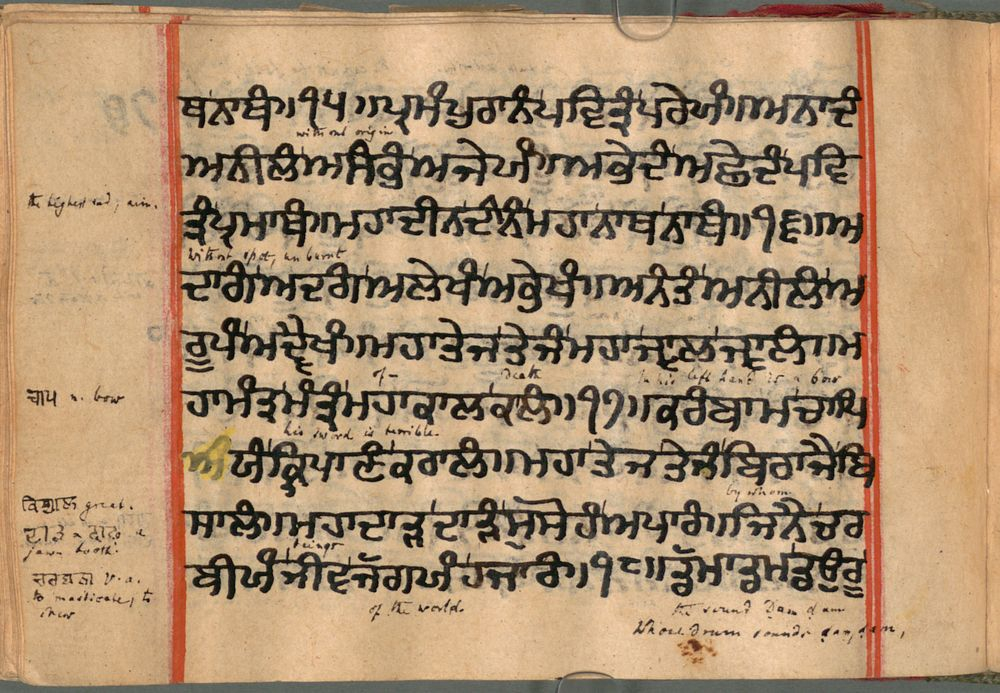 ਥਨਾਥੰ॥੧੫॥ਪ੍ਰਮੰਪੁਰਾਨੰਪਵਿਤ੍ਰੰਪਰੇਯੰ॥ਅਨਾਦੰ
without origin
ਅਨੀਲੰਅਸੰਭੰਅਜੇਯੰ॥ਅਭੇਦੰਅਛੇਦੰਪਵਿ
the highest end; aim.
ਤ੍ਰੰਪ੍ਰਮਾਥੰ॥ਮਹਾਦੀਨਦੀਨੰਮਹਾਨਾਥਨਾਥੰ॥੧੬॥ਅ
without spot, unburnt
ਦਾਗੰਅਦਗੰਅਲੇਖੰਅਭੇਖੰ॥ਅਨੰਤੰਅਨੀਲੰਅ
ਰੂਪੰਅਦ੍ਵੈਖੰ॥ਮਹਾਤੇਜਤੇਜੰਮਹਾਜ੍ਵਾਲਜ੍ਵਾਲੰ॥ਮ
of death in his left hand is a bow
ਚਾਪ n. bow
ਹਾਮੰਤ੍ਰਮੰਤ੍ਰੰਮਹਾਕਾਲਕਾਲੰ॥੧੭॥ਕਰੰਬਾਮਚਾਪਿ
his sword is terrible.
ਯੰਕ੍ਰਿਪਾਣੰਕਰਾਲੰ॥ਮਹਾਤੇਜਤੇਜੰਬਿਰਾਜੈਬਿ
by whom
great.
ਸਾਲੰ॥ਮਹਾਦਾੜ੍ਹਦਾੜ੍ਹੰਸੁਸੋਹੰਅਪਾਰੰ॥ਜਿਨੈਚਰ
a jawn tooth.
beings
ਬੀਯੰਜੀਵਜੱਗਯੰਹਜਾਰੰ॥੧੮॥ਡੁੱਮਾਡੁਮਡਉਰੂ
ਚਰਬਣਾ v. a. to masticate, to chew
of the world. the sound Dam dam
Whose drum sounds dam, dam,